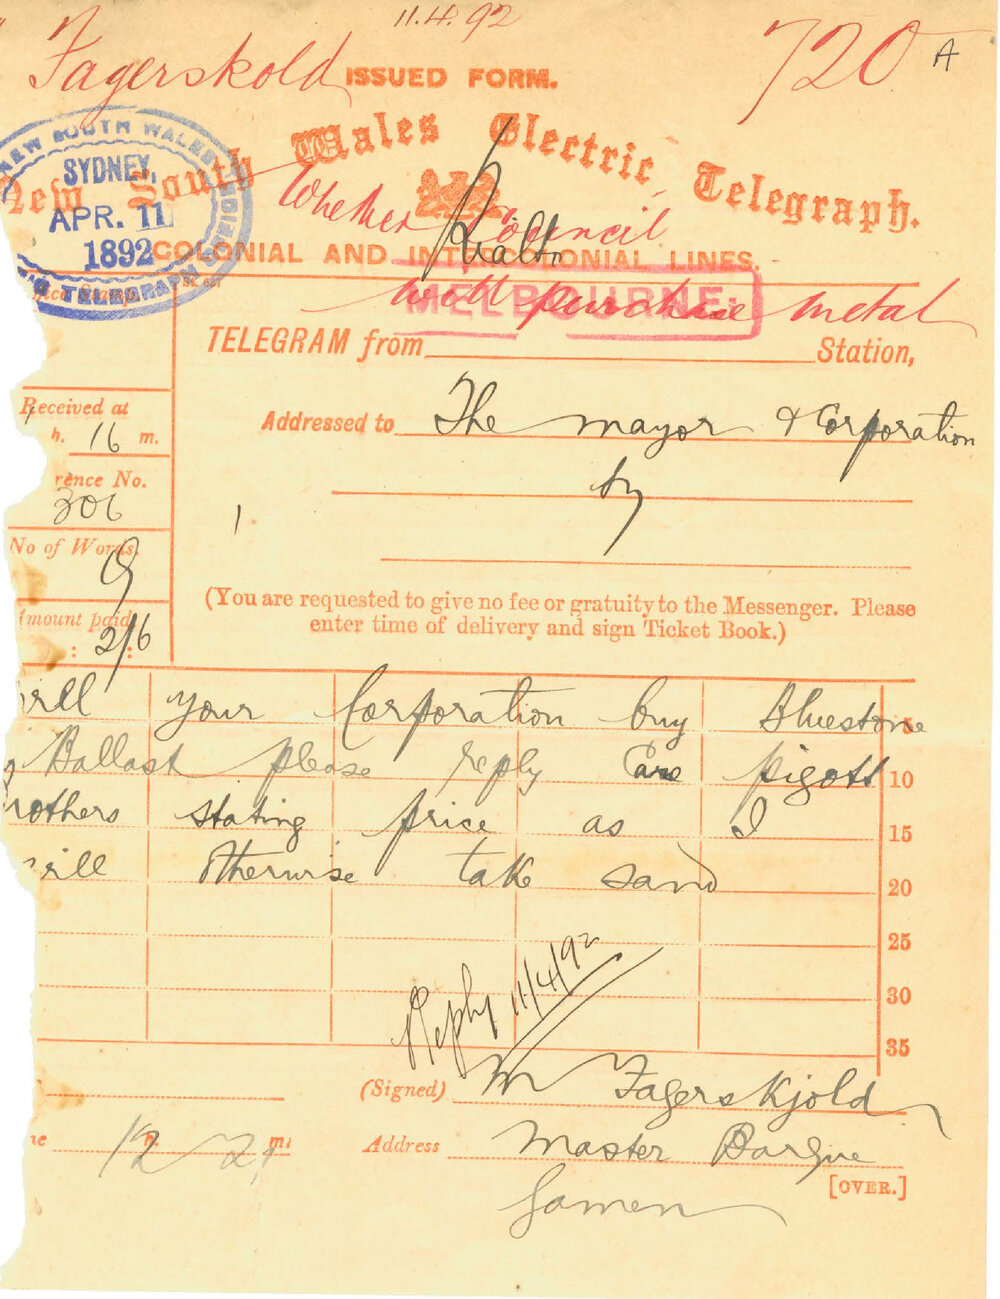 11.4.92
Fagerskold ISSUED FORM. 720 A
New South Wales Electric Telegraph.
NEW SOUTH WALES
SYDNEY,
APR. 11
1892
TELEGRAPH
Whether Council
Rialto
COLONIAL AND INTERCOLONIAL LINES.
will purchase metal
MELBOURNE
TELEGRAM from Station,
Received at
h. 16 m.
Addressed to The Mayor & Corporation
rence No.
306
No of Words.
mount paid
: 2/6
(You are requested to give no fee or gratuity to the Messenger. Please
enter time of delivery and sign Ticket Book.)
ill your Corporation buy Bluestone 5
Ballast please reply Care pigott 10
rothers stating price as I 15
ill otherwise take sand 20
25
30
35
Reply 11/4/92
(Signed) M Fagerskjold
12 h. 21 m.
Address Master Barque
[OVER.]
Gamen